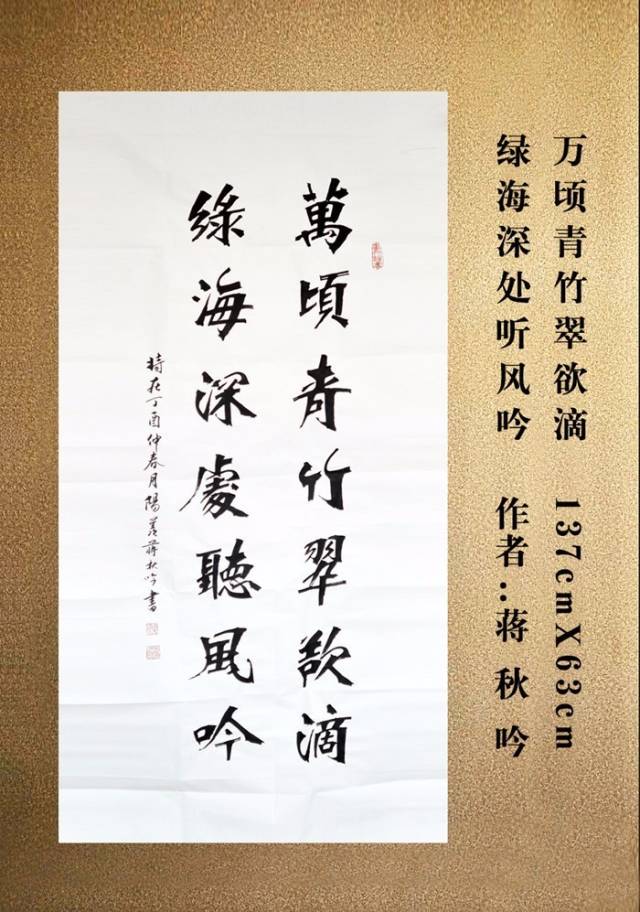 万顷青竹翠欲滴 137cmX63cm
绿海深处听风吟 作者:蒋秋吟
萬頃青竹翠欲滴
綠海深處聽風吟
時在丁酉仲春月陽羨蔣秋吟書